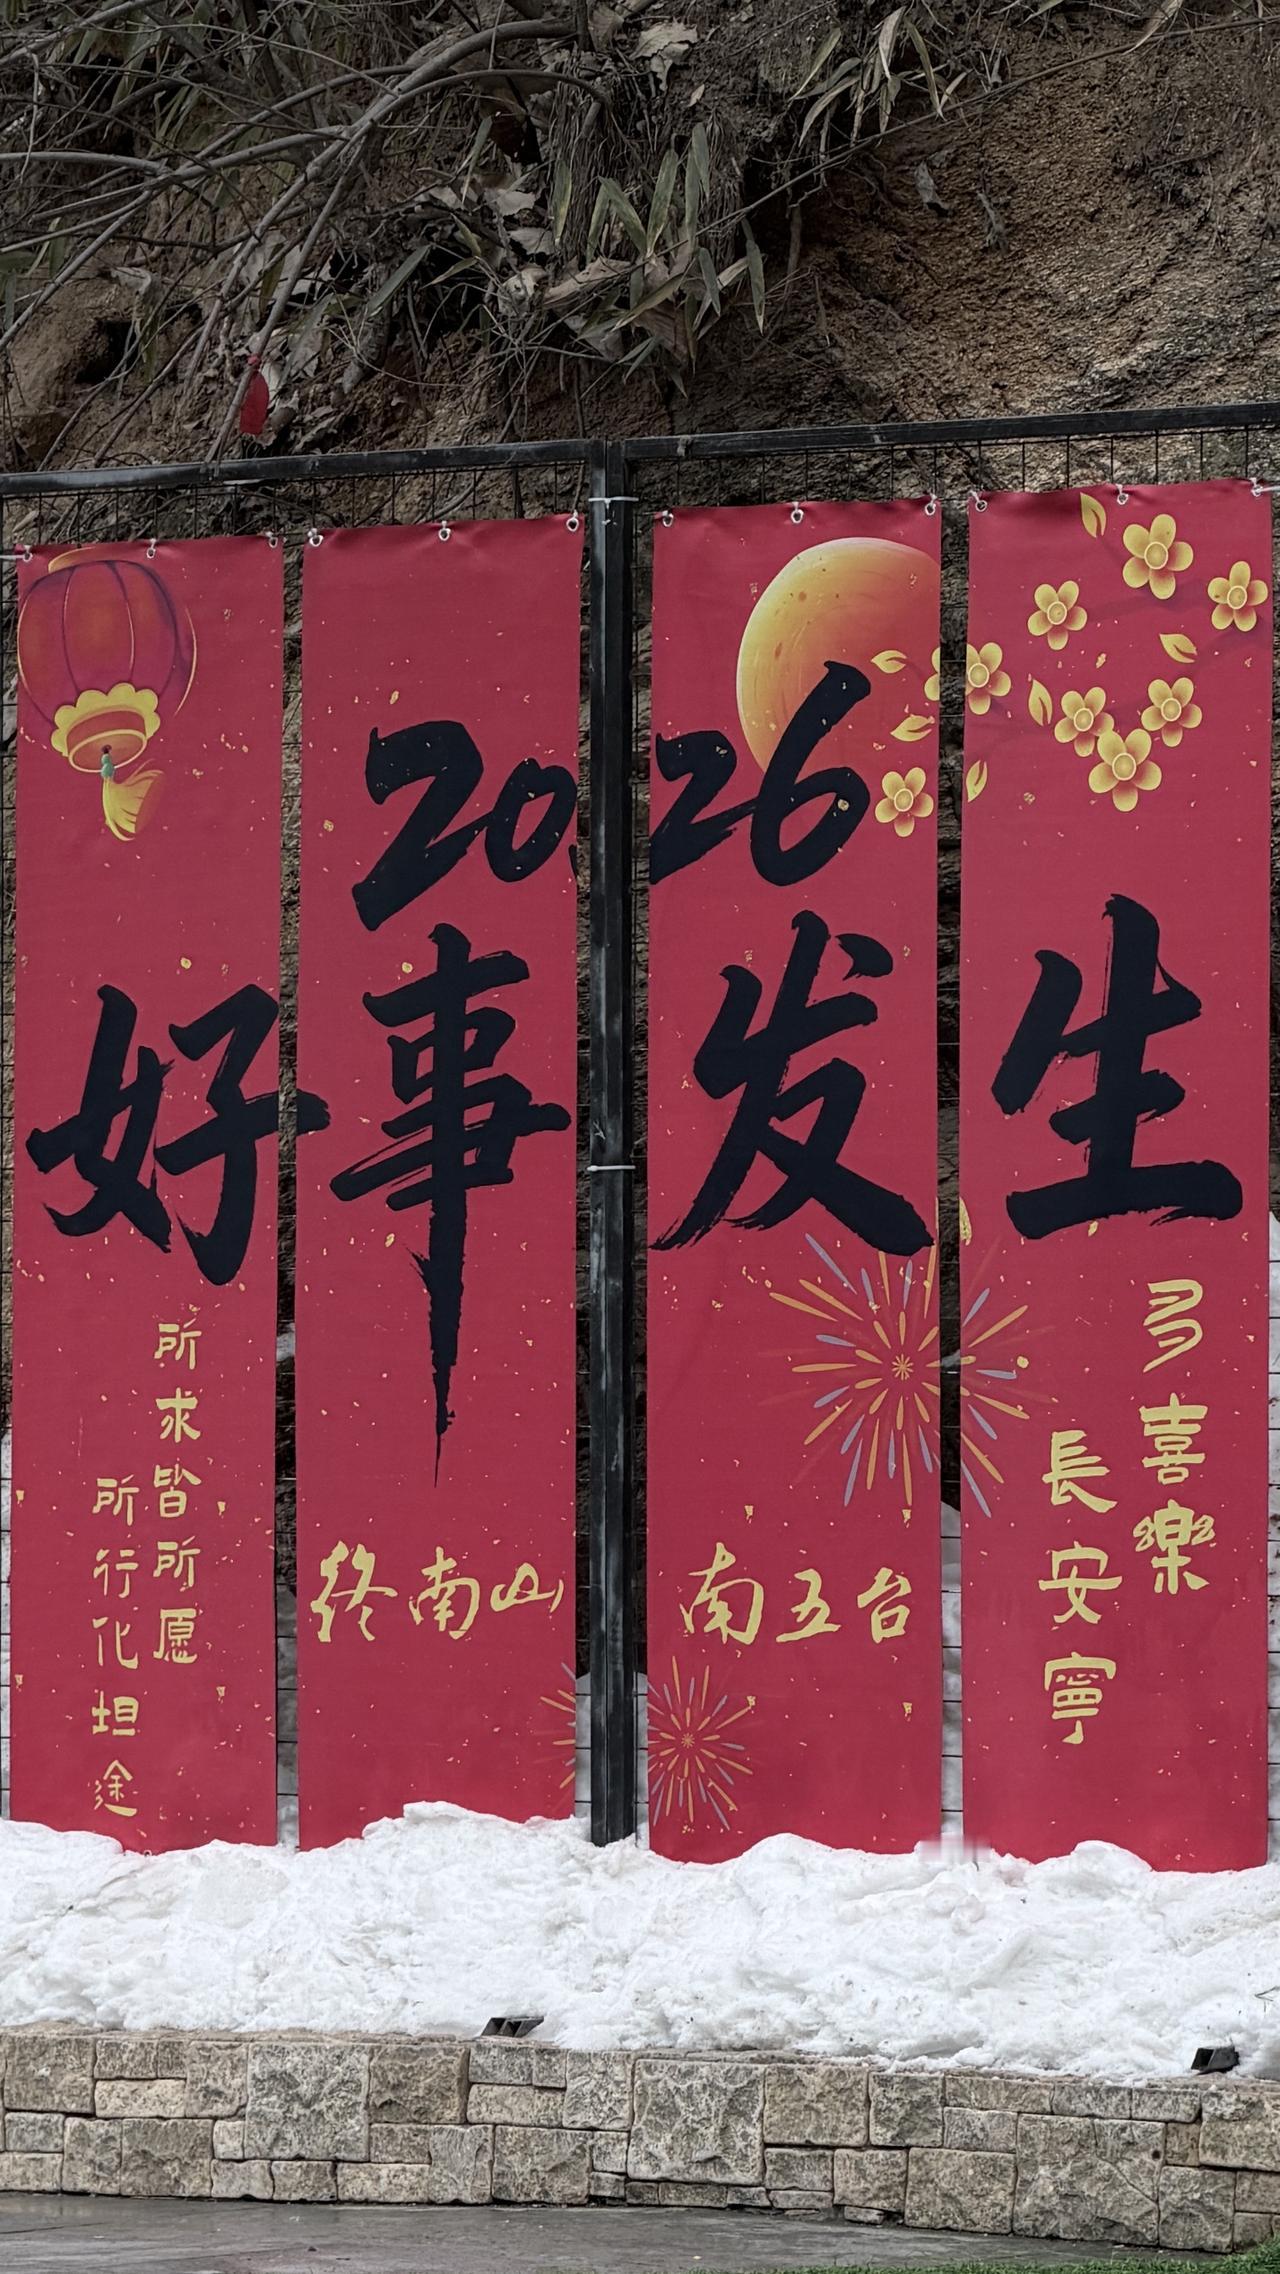 2026
好事发生
所求皆所愿
所行化坦途
终南山
南五台
多喜樂
長安寧